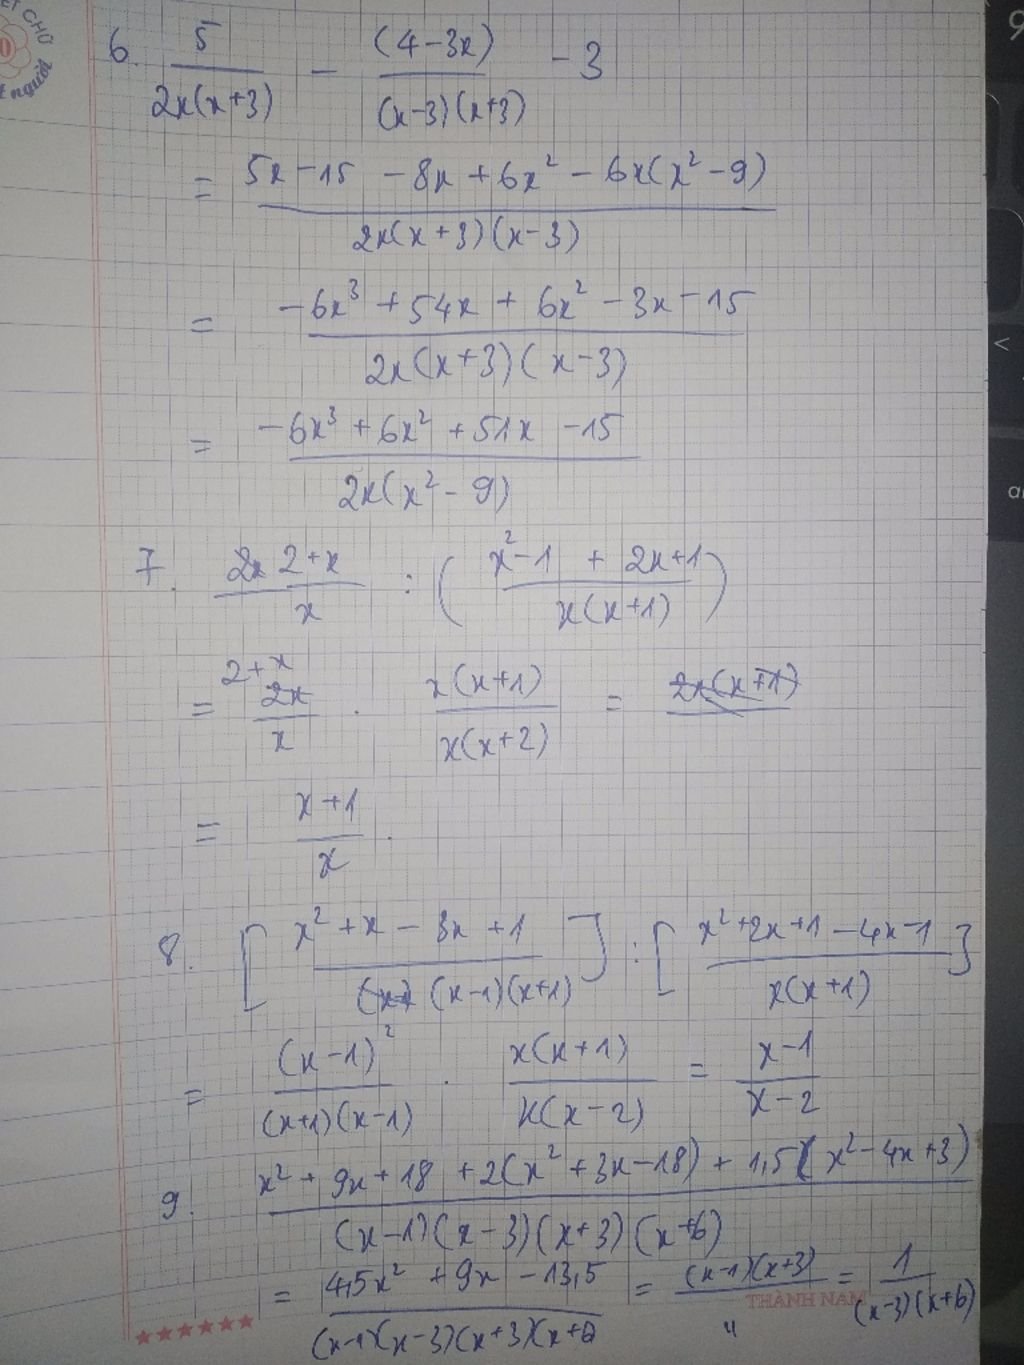 ẾT CHỮ
người
6. 5/(2x(x+3)) - (4-3x)/((x-3)(x+3)) - 3
= (5x-15 - 8x + 6x² - 6x(x²-9))/(2x(x+3)(x-3))
= (-6x³ + 54x + 6x² - 3x - 15)/(2x(x+3)(x-3))
= (-6x³ + 6x² + 51x - 15)/(2x(x²-9))
7. (2+x)/x : ((x²-1 + 2x+1)/(x(x+1)))
= (2+x)/x . (x(x+1))/(x(x+2)) = 2x(x+1)
= (x+1)/x .
8. [(x²+x-3x+1)/((x-1)(x+1))] : [(x²+2x+1-4x-1)/(x(x+1))]
= (x-1)²/((x+1)(x-1)) . (x(x+1))/(x(x-2)) = (x-1)/(x-2)
9. (x² + 9x + 18 + 2(x²+3x-18) + 1,5(x²-4x+3))/((x-1)(x-3)(x+3)(x+6))
= (4,5x² + 9x - 13,5)/((x-1)(x-3)(x+3)(x+6) = ((x-1)(x+3))/" = 1/((x-3)(x+6))
THÀNH NAM